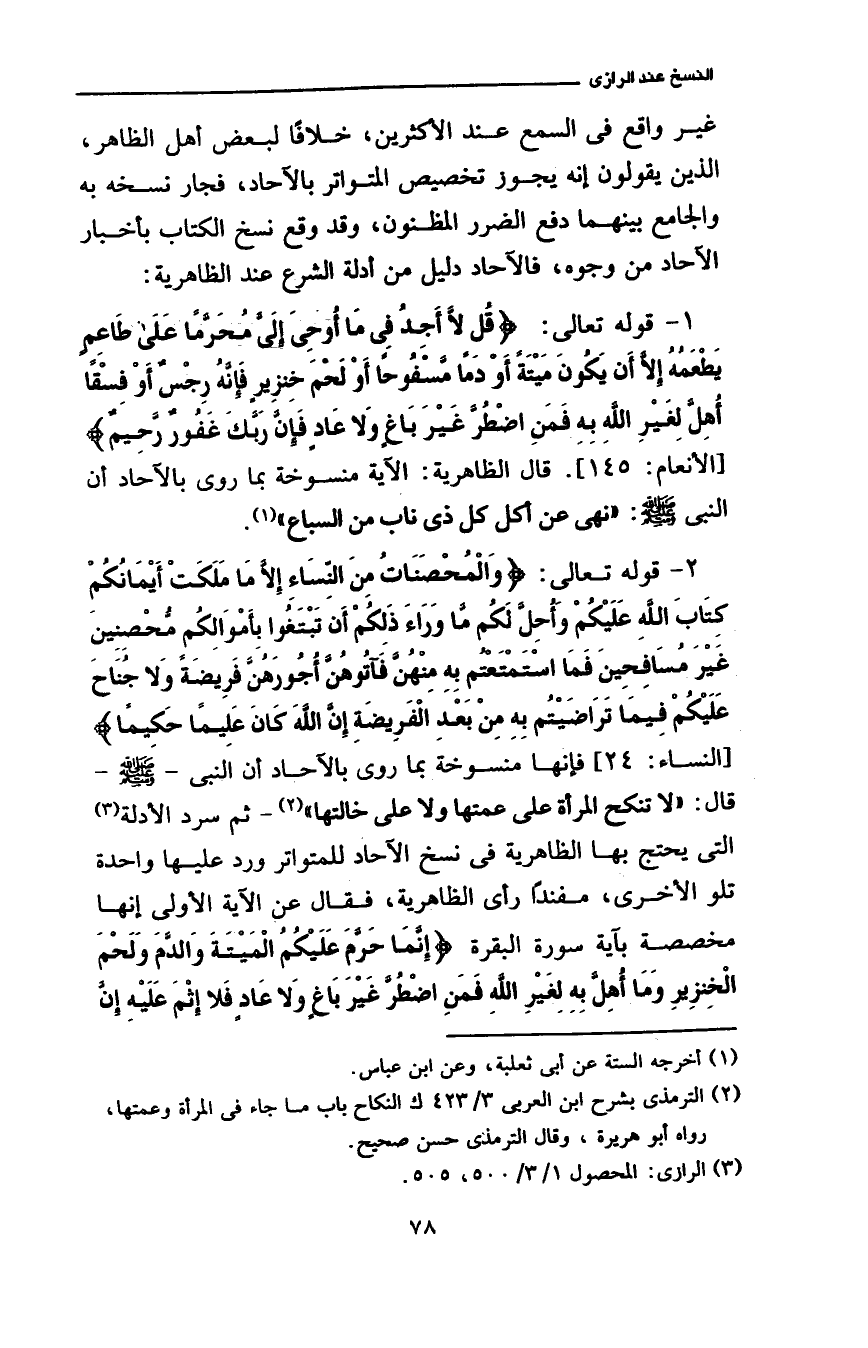 النسخ عند الرازى
غير واقع فى السمع عند الأكثرين، خلافًا لبعض أهل الظاهر،
الذين يقولون إنه يجوز تخصيص المتواتر بالآحاد، فجار نسخه به
والجامع بينهما دفع الضرر المظنون، وقد وقع نسخ الكتاب بأخبار
الآحاد من وجوه، فالآحاد دليل من أدلة الشرع عند الظاهرية:
١- قوله تعالى: ﴿قُل لاَّ أَجِدُ فِي مَا أُوحِيَ إِلَيَّ مُحَرَّمًا عَلَىٰ طَاعِمٍ
يَطْعَمُهُ إِلاَّ أَن يَكُونَ مَيْتَةً أَوْ دَمًا مَّسْفُوحًا أَوْ لَحْمَ خِنزِيرٍ فَإِنَّهُ رِجْسٌ أَوْ فِسْقًا
أُهِلَّ لِغَيْرِ اللَّهِ بِهِ فَمَنِ اضْطُرَّ غَيْرَ بَاغٍ وَلا عَادٍ فَإِنَّ رَبَّكَ غَفُورٌ رَّحِيمٌ﴾
[الأنعام: ١٤٥]. قال الظاهرية: الآية منسوخة بما روى بالآحاد أن
النبى ﷺ: «نهى عن أكل كل ذى ناب من السباع»(١).
٢- قوله تعالى: ﴿وَالْمُحْصَنَاتُ مِنَ النِّسَاءِ إِلاَّ مَا مَلَكَتْ أَيْمَانُكُمْ
كِتَابَ اللَّهِ عَلَيْكُمْ وَأُحِلَّ لَكُم مَّا وَرَاءَ ذَلِكُمْ أَن تَبْتَغُوا بِأَمْوَالِكُم مُّحْصِنِينَ
غَيْرَ مُسَافِحِينَ فَمَا اسْتَمْتَعْتُم بِهِ مِنْهُنَّ فَآتُوهُنَّ أُجُورَهُنَّ فَرِيضَةً وَلا جُنَاحَ
عَلَيْكُمْ فِيمَا تَرَاضَيْتُم بِهِ مِنْ بَعْدِ الْفَرِيضَةِ إِنَّ اللَّهَ كَانَ عَلِيمًا حَكِيمًا﴾
[النساء: ٢٤] فإنها منسوخة بما روى بالآحاد أن النبى - ﷺ -
قال: «لا تنكح المرأة على عمتها ولا على خالتها»(٢) - ثم سرد الأدلة(٣)
التى يحتج بها الظاهرية فى نسخ الآحاد للمتواتر ورد عليها واحدة
تلو الأخرى، مفندًا رأى الظاهرية، فقال عن الآية الأولى إنها
مخصصة بآية سورة البقرة ﴿إِنَّمَا حَرَّمَ عَلَيْكُمُ الْمَيْتَةَ وَالدَّمَ وَلَحْمَ
الْخِنزِيرِ وَمَا أُهِلَّ بِهِ لِغَيْرِ اللَّهِ فَمَنِ اضْطُرَّ غَيْرَ بَاغٍ وَلا عَادٍ فَلا إِثْمَ عَلَيْهِ إِنَّ
(١) أخرجه الستة عن أبى ثعلبة، وعن ابن عباس.
(٢) الترمذى بشرح ابن العربى ٤٢٣/٣ ك النكاح باب ما جاء فى المرأة وعمتها،
رواه أبو هريرة ، وقال الترمذى حسن صحيح.
(٣) الرازى: المحصول ١/ ٣/ ٥٠٠، ٥٠٥.
٧٨